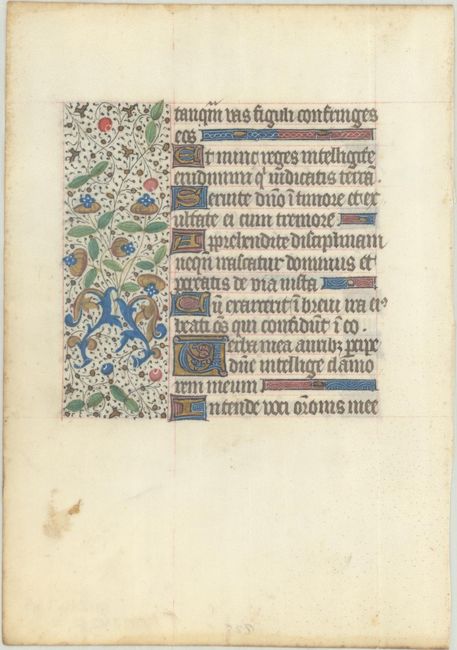 tanq̃m vas figuli confringes
eos
Et nunc reges intelligite
erudimini q̃ iudicatis terrã.
Seruite dño ĩ timore et ex
ultate ei cum tremore
Aprehendite disciplinam
nequ irascatur dominus et
pereatis de via iusta
Cũ exarcerit ĩ breui ira eiꝰ
beati oẽs qui confidũt ĩ eo.
Verba mea auribꝫ ꝑcipe
dñe intellige clamo
rem meum
Intende voci orõnis mee